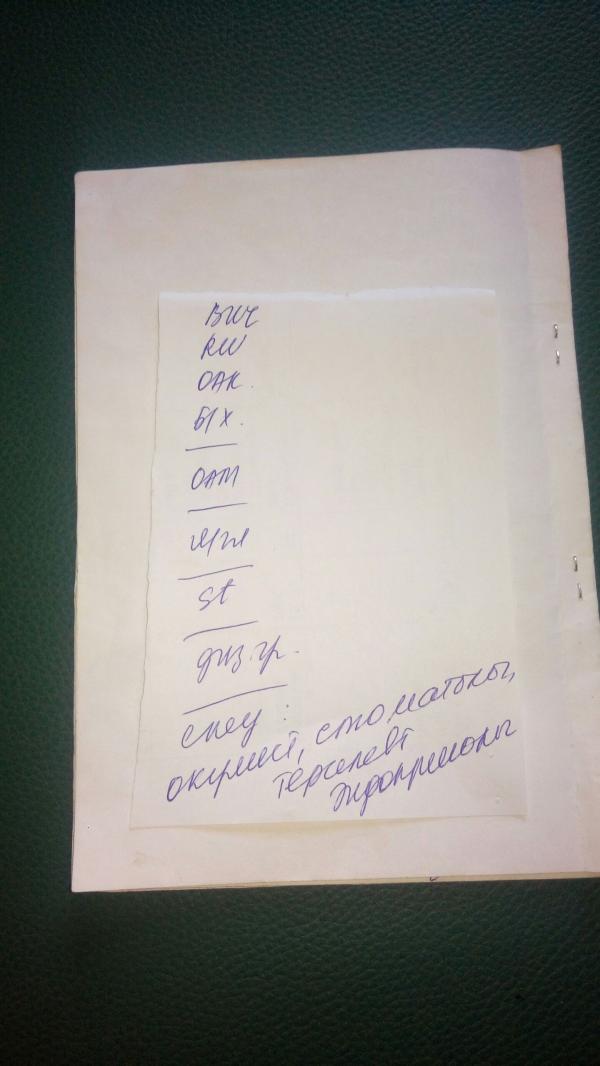 ВИЧ
RW
ОАК.
Б/Х.
ОАМ
я/гл
St
физ. гр.
спец:
окулист, стоматолог,
терапевт
эндокринолог